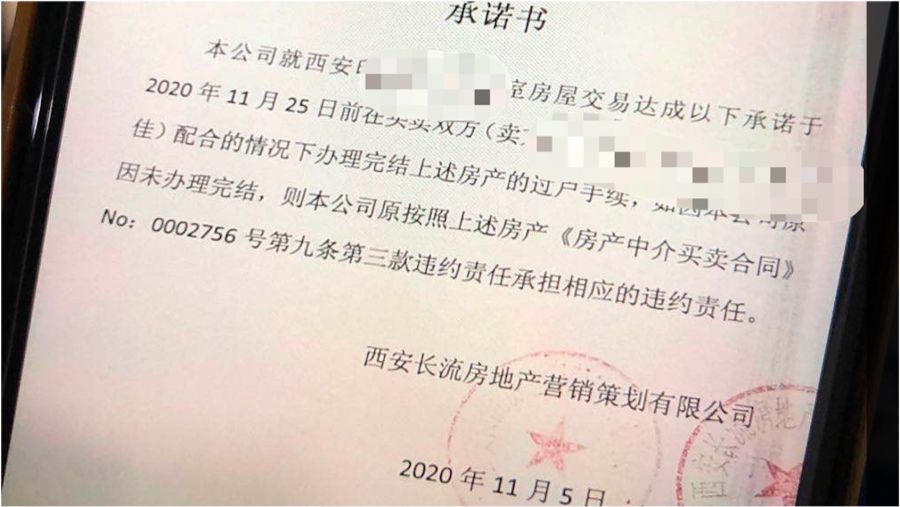 承诺书
本公司就西安 室房屋交易达成以下承诺于
2020年11月25日前在买卖双方(卖
佳)配合的情况下办理完结上述房产的过户手续,如因本公司原
因未办理完结,则本公司原按照上述房产《房产中介买卖合同》
No:0002756号第九条第三款违约责任承担相应的违约责任。
西安长流房地产营销策划有限公司
2020年11月5日
西安长流房地产